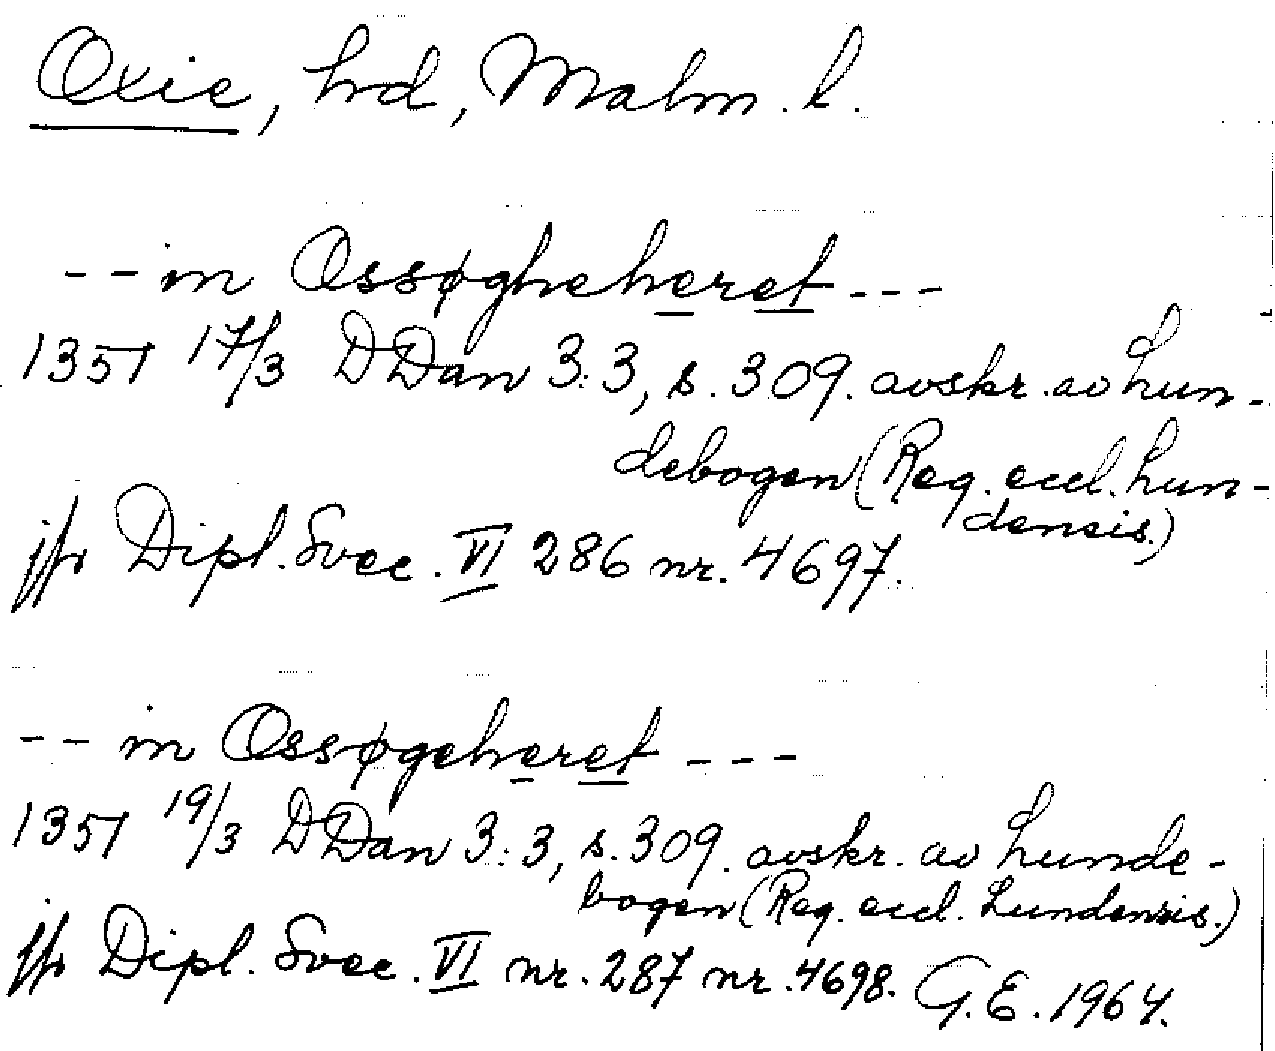 Oxie, hd, Malm. l.
-- in Ossøgheheret ---
1351 17/3 DDan 3:3, s. 309. avskr. av Lun-
debogen (Reg. eccl. Lun-
densis.)
jfr Dipl. Svec. VI 286 nr. 4697.
-- in Ossøgeheret ---
1351 19/3 DDan 3:3, s. 309. avskr. av Lunde-
bogen (Reg. eccl. Lundensis.)
jfr Dipl. Svec. VI nr. 287 nr. 4698. G.E. 1964.